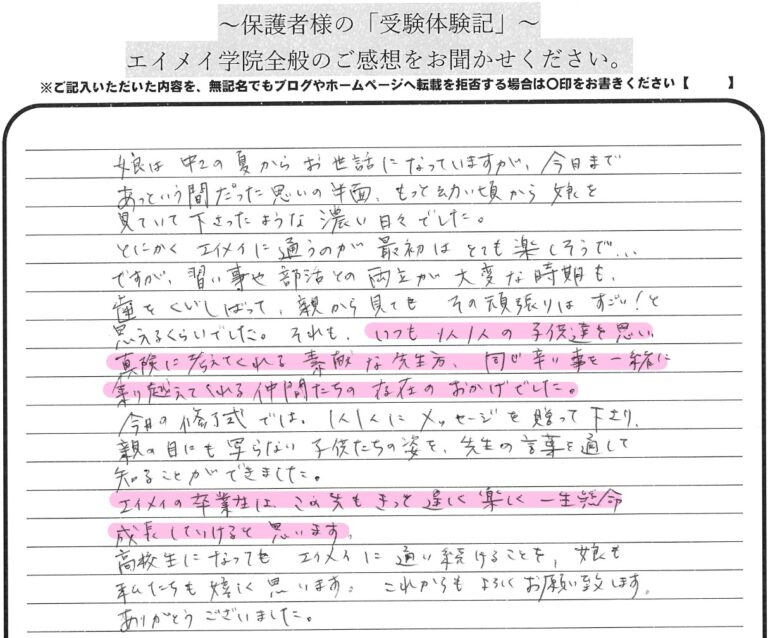 ～保護者様の「受験体験記」～
エイメイ学院全般のご感想をお聞かせください。
※ご記入いただいた内容を、無記名でもブログやホームページへ転載を拒否する場合は〇印をお書きください【　　】
娘は中2の夏からお世話になっていますが、今日まで
あっという間だった思いの半面、もっと幼い頃から娘を
見ていて下さったような濃い日々でした。
とにかくエイメイに通うのが最初はとても楽しそうで…
ですが、習い事や部活との両立が大変な時期も、
歯をくいしばって、親から見てもその頑張りはすごい!と
思えるくらいでした。それも、いつも1人1人の子供達を思い、
真険に考えてくれる素敵な先生方、同じ辛い事を一緒に
乗り越えてくれる仲間たちの存在のおかげでした。
今日の修了式では、1人1人にメッセージを贈って下さり、
親の目にも写らない子供たちの姿を、先生の言葉を通して
知ることができました。
エイメイの卒業生は、この先もきっと逞しく楽しく一生懸命
成長していけると思います。
高校生になってもエイメイに通い続けることを、娘も
私たちも嬉しく思います。これからもよろしくお願い致します。
ありがとうございました。